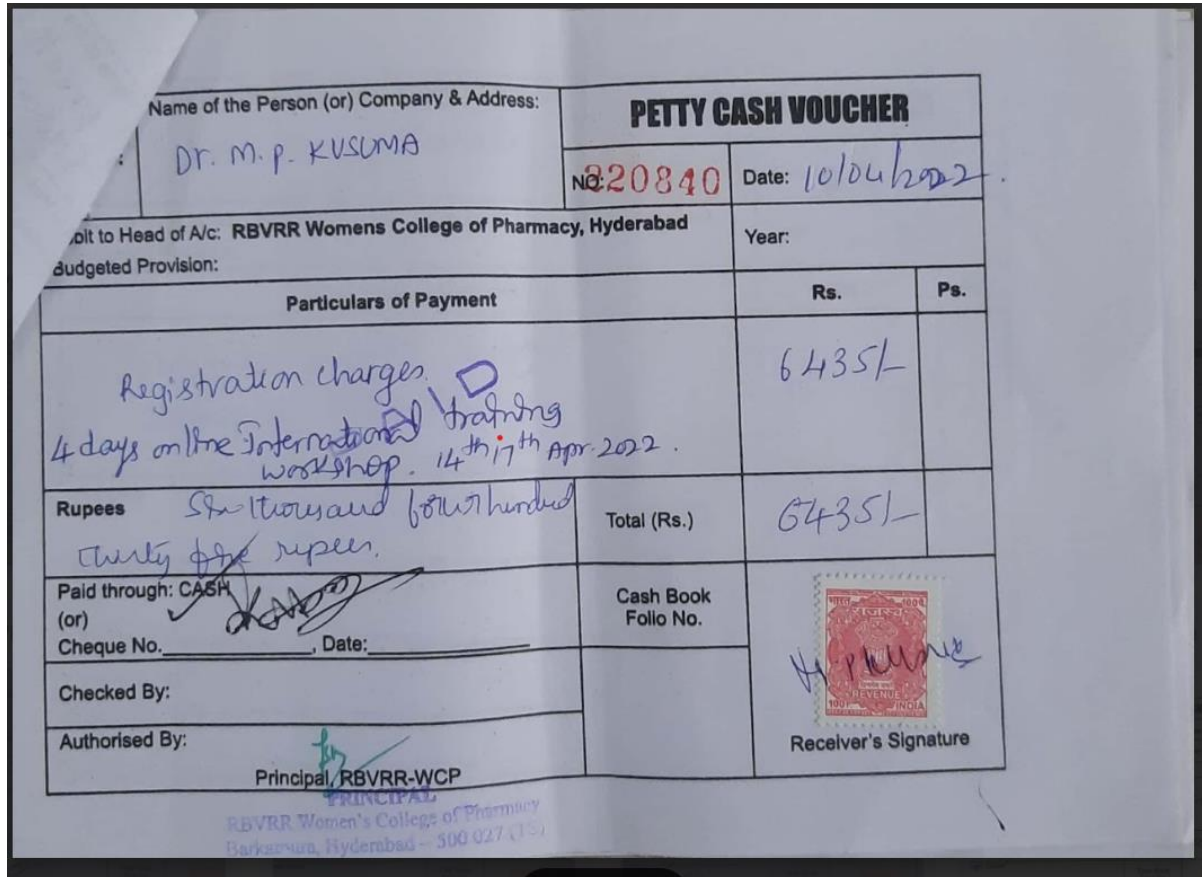 Name of the Person (or) Company & Address:
Dr. M. P. KUSUMA
PETTY CASH VOUCHER
NO: 220840
Date: 10/04/2022.
bit to Head of A/c: RBVRR Womens College of Pharmacy, Hyderabad
Budgeted Provision:
Year:
Particulars of Payment
Rs.
Ps.
Registration charges.
6435/-
PAID
4 days online International training
workshop. 14th 17th Apr. 2022.
Rupees Six thousand four hundred
thirty five rupees.
Total (Rs.)
6435/-
Paid through: CASH
(or)
Cheque No. , Date:
Cash Book
Folio No.
Checked By:
Authorised By:
Principal, RBVRR-WCP
PRINCIPAL
RBVRR Women's College of Pharmacy
Barkatpura, Hyderabad - 500 027 (TS)
REVENUE
INDIA
Receiver's Signature